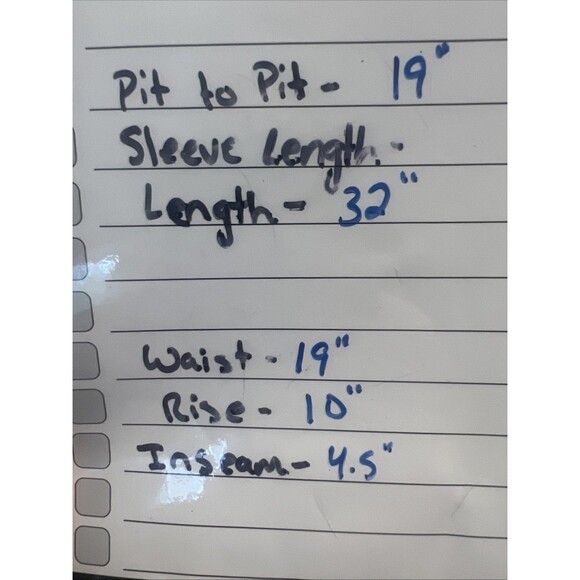 Pit to Pit - 19"
Sleeve Length -
Length - 32"
Waist - 19"
Rise - 10"
Inseam - 4.5"